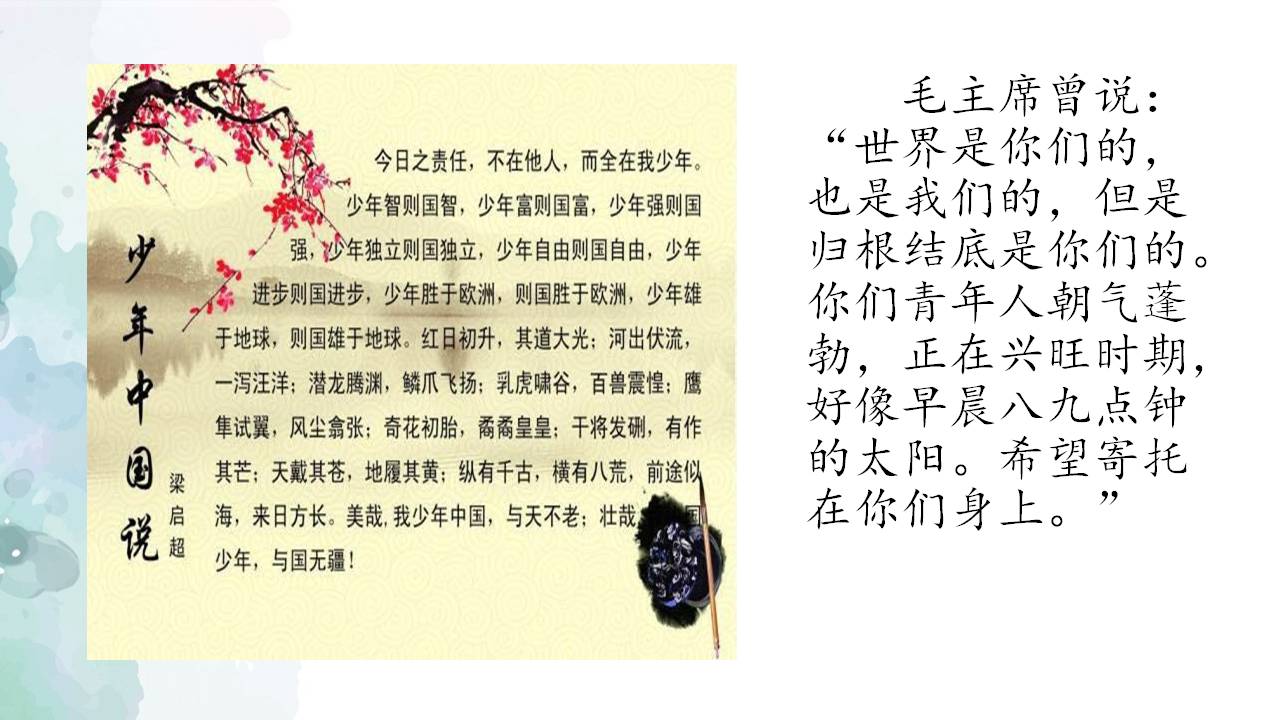 少年中国说
梁启超
今日之责任，不在他人，而全在我少年。
少年智则国智，少年富则国富，少年强则国
强，少年独立则国独立，少年自由则国自由，少年
进步则国进步，少年胜于欧洲，则国胜于欧洲，少年雄
于地球，则国雄于地球。红日初升，其道大光；河出伏流，
一泻汪洋；潜龙腾渊，鳞爪飞扬；乳虎啸谷，百兽震惶；鹰
隼试翼，风尘翕张；奇花初胎，矞矞皇皇；干将发硎，有作
其芒；天戴其苍，地履其黄；纵有千古，横有八荒，前途似
海，来日方长。美哉,我少年中国，与天不老；壮哉 国
少年，与国无疆！
毛主席曾说：
“世界是你们的，
也是我们的，但是
归根结底是你们的。
你们青年人朝气蓬
勃，正在兴旺时期，
好像早晨八九点钟
的太阳。希望寄托
在你们身上。”